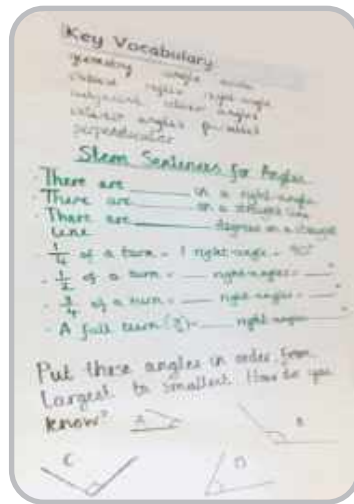 Key Vocabulary
geometry angle acute
obtuse reflex right-angle
interior angles
exterior angles parallel
perpendicular
Stem Sentences for Angles
There are ______ in a right-angle
There are ______ on a straight line
There are ______ degrees on a straight
line
1/4 of a turn = 1 right-angle = 90°
- 1/2 of a turn = ___ right-angles = ___°
- 3/4 of a turn = ___ right-angles = ___°
- A full turn = ___ right-angles ___°
Put these angles in order from
largest to smallest. How do you
know?
A
B
C
D